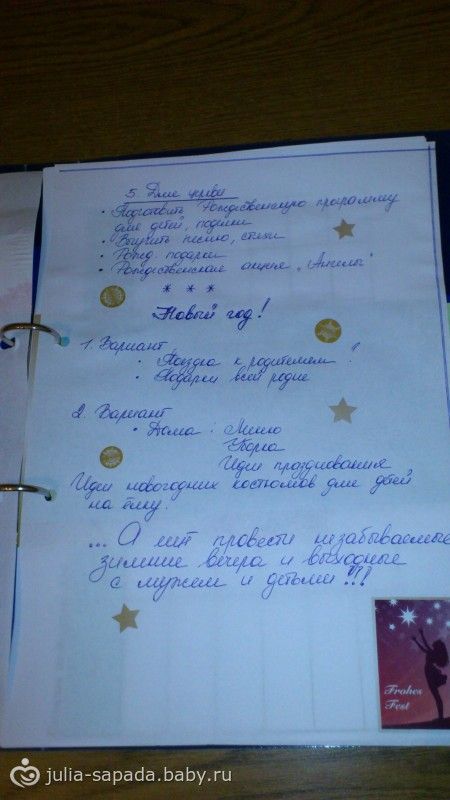 5. Для церкви
• Подготовить Рождественскую программу
для детей, поделки
• Выучить песню, стихи
• Рожд. подарки
• Рождественская акция „Ангелы"
* * *
Новый год!
1. Вариант
• Поездка к родителям!
• Подарки всей родне
2. Вариант
• Дома: Меню
Уборка
Идеи празднования
Идеи новогодних костюмов для детей
на ёлку.
... А ещё провести незабываемые
зимние вечера и выходные
с мужем и детьми!!!
Frohes
Fest
julia-sapada.baby.ru